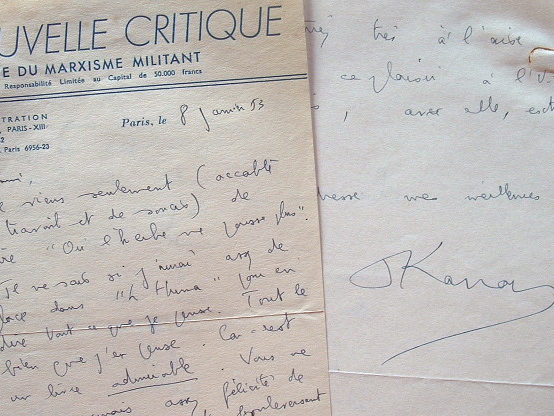 UVELLE CRITIQUE
E DU MARXISME MILITANT
Responsabilité Limitée au Capital de 50.000 francs
TRATION
, PARIS-XIII
2
Paris 6956-23
Paris, le 8 janvier 53
viens seulement (accablé
travail et de soucis) de
"Où l'herbe ne pousse plus".
Je ne sais si j'aurai assez de
place dans "L'Huma" pour en
dire tout ce que je pense. Tout le
bien que j'en pense. Car c'est
un livre admirable. Vous ne
assez félicité de
bouleversant
très à l'aise
ce plaisir à l'U
, avec elle, est
mes meilleures